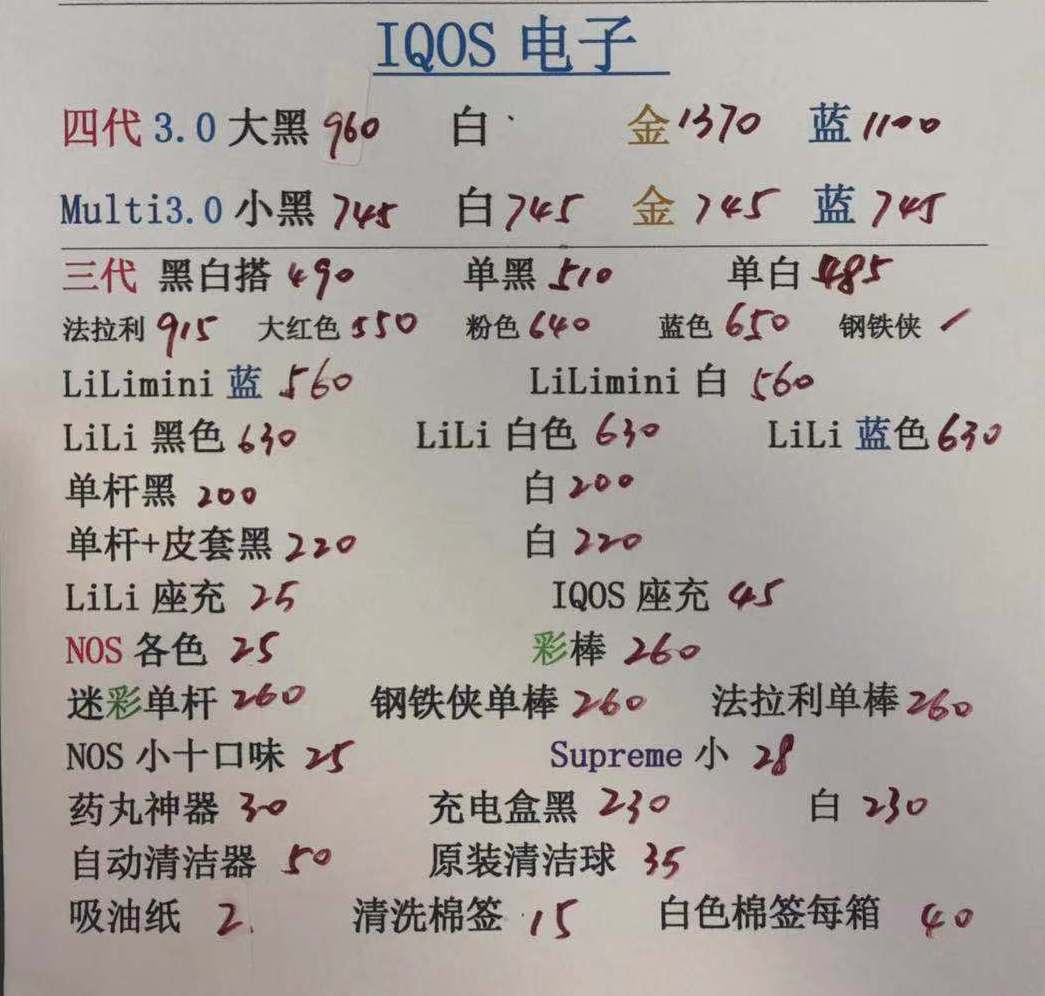 IQOS 电子
四代 3.0 大黑 960 白 金 1370 蓝 1100
Multi3.0 小黑 745 白 745 金 745 蓝 745
三代 黑白搭 490 单黑 510 单白 485
法拉利 915 大红色 550 粉色 640 蓝色 650 钢铁侠
LiLimini 蓝 560 LiLimini 白 560
LiLi 黑色 630 LiLi 白色 630 LiLi 蓝色 630
单杆黑 200 白 200
单杆+皮套黑 220 白 220
LiLi 座充 25 IQOS 座充 45
NOS 各色 25 彩棒 260
迷彩单杆 260 钢铁侠单棒 260 法拉利单棒 260
NOS 小十口味 25 Supreme 小 28
药丸神器 30 充电盒黑 230 白 230
自动清洁器 50 原装清洁球 35
吸油纸 2. 清洗棉签 15 白色棉签每箱 40